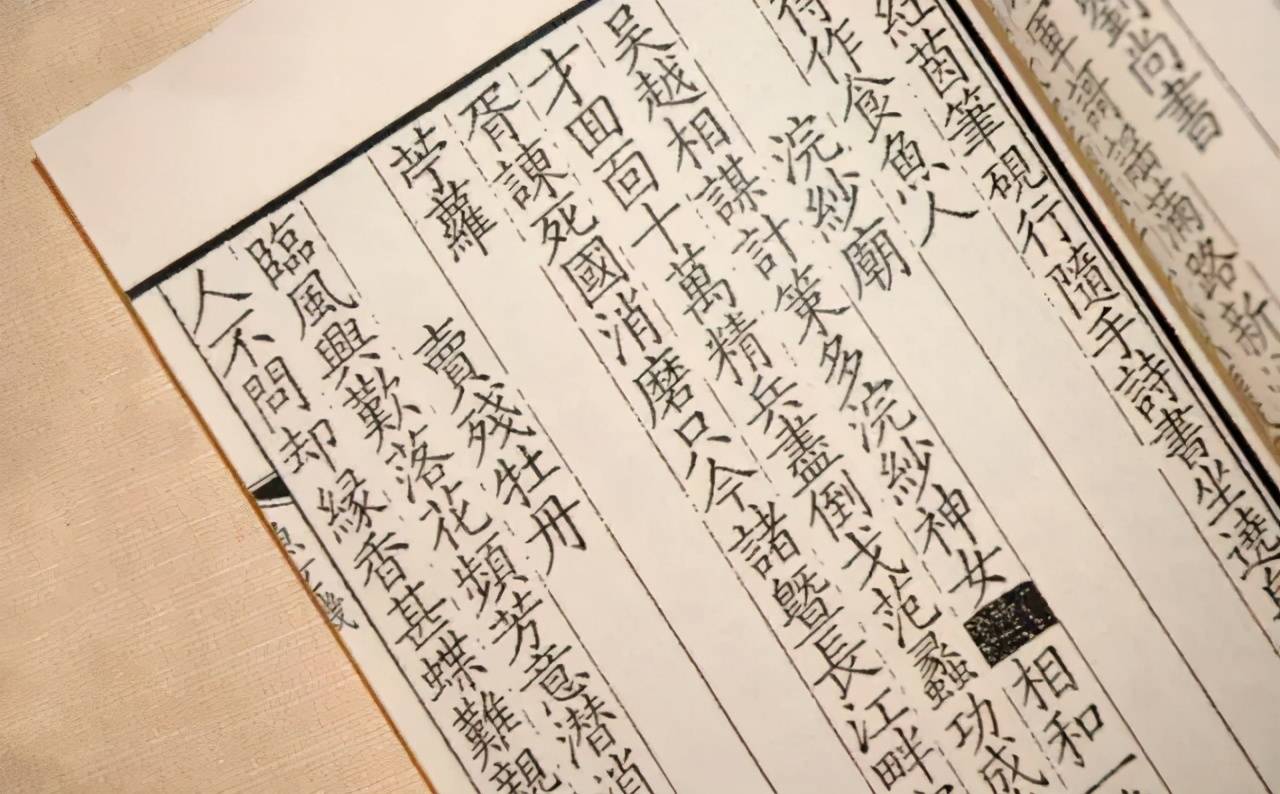 劉尚書
軍謌謡滿路新
紅茵筆硯行隨手詩書坐遶
得作食魚人
浣紗廟
吳越相謀計策多浣紗神女相和一
才囬面十萬精兵盡倒戈范蠡功成
胥諫死國消磨只今諸暨長江畔
苧蘿
賣殘牡丹
臨風興歎落花頻芳意潜消
人不問却緣香甚蝶難親